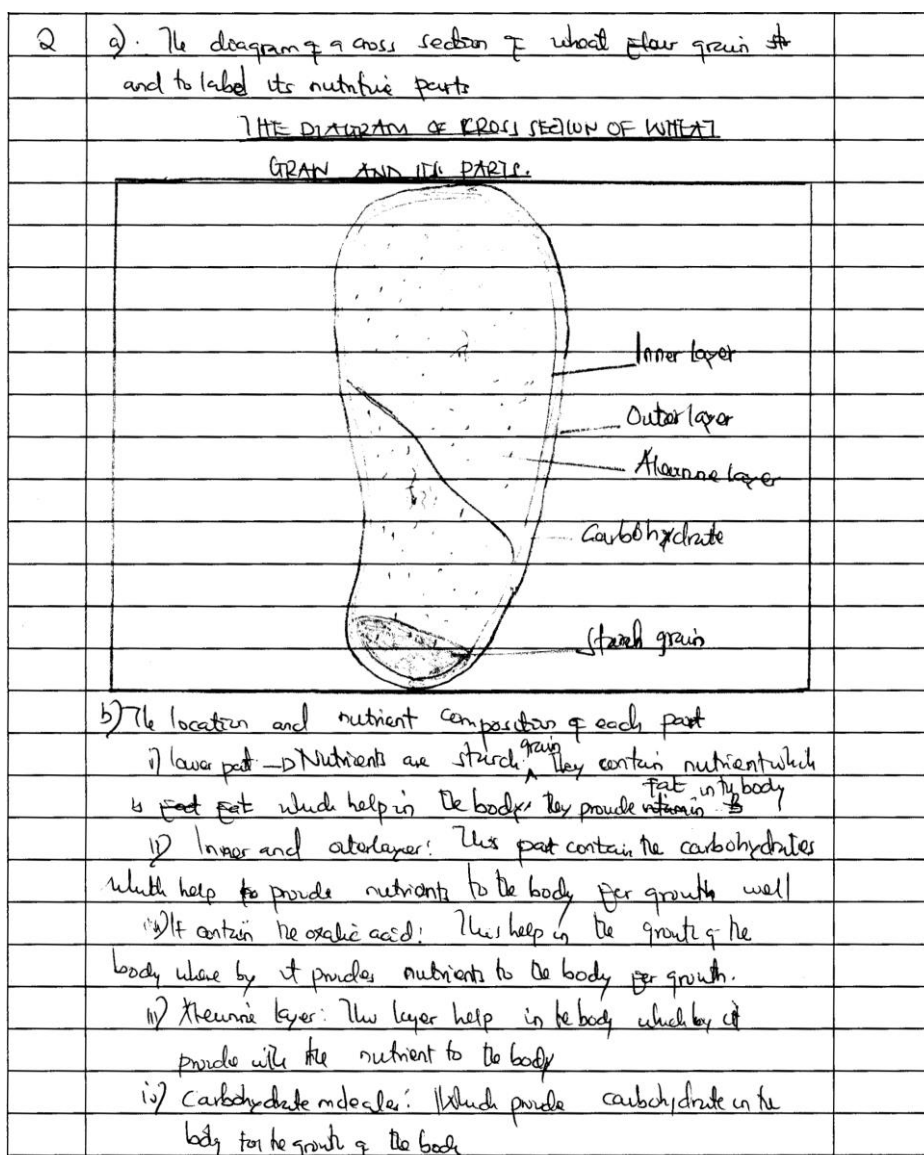 2 a). The diagram of a cross section of wheat flour grain
and to label its nutritive parts
THE DIAGRAM OF CROSS SECTION OF WHEAT
GRAIN AND ITS PARTS.
Inner layer
Outer layer
Aleurone layer
Carbohydrate
Starch grain
b) The location and nutrient composition of each part
i) lower part → Nutrients are starch grain they contain nutrient which
is Fat which help in the body, they provide Fat in the body
ii) Inner and outerlayer: This part contain the carbohydrates
which help to provide nutrients to the body for growth well
It contain the oxalic acid: This help in the growth of the
body where by it provides nutrients to the body for growth.
iii) layer: This layer help in the body which by it
provide with the nutrient to the body
iv) Carbohydrate: Which provide carbohydrate in the
body for the growth of the body